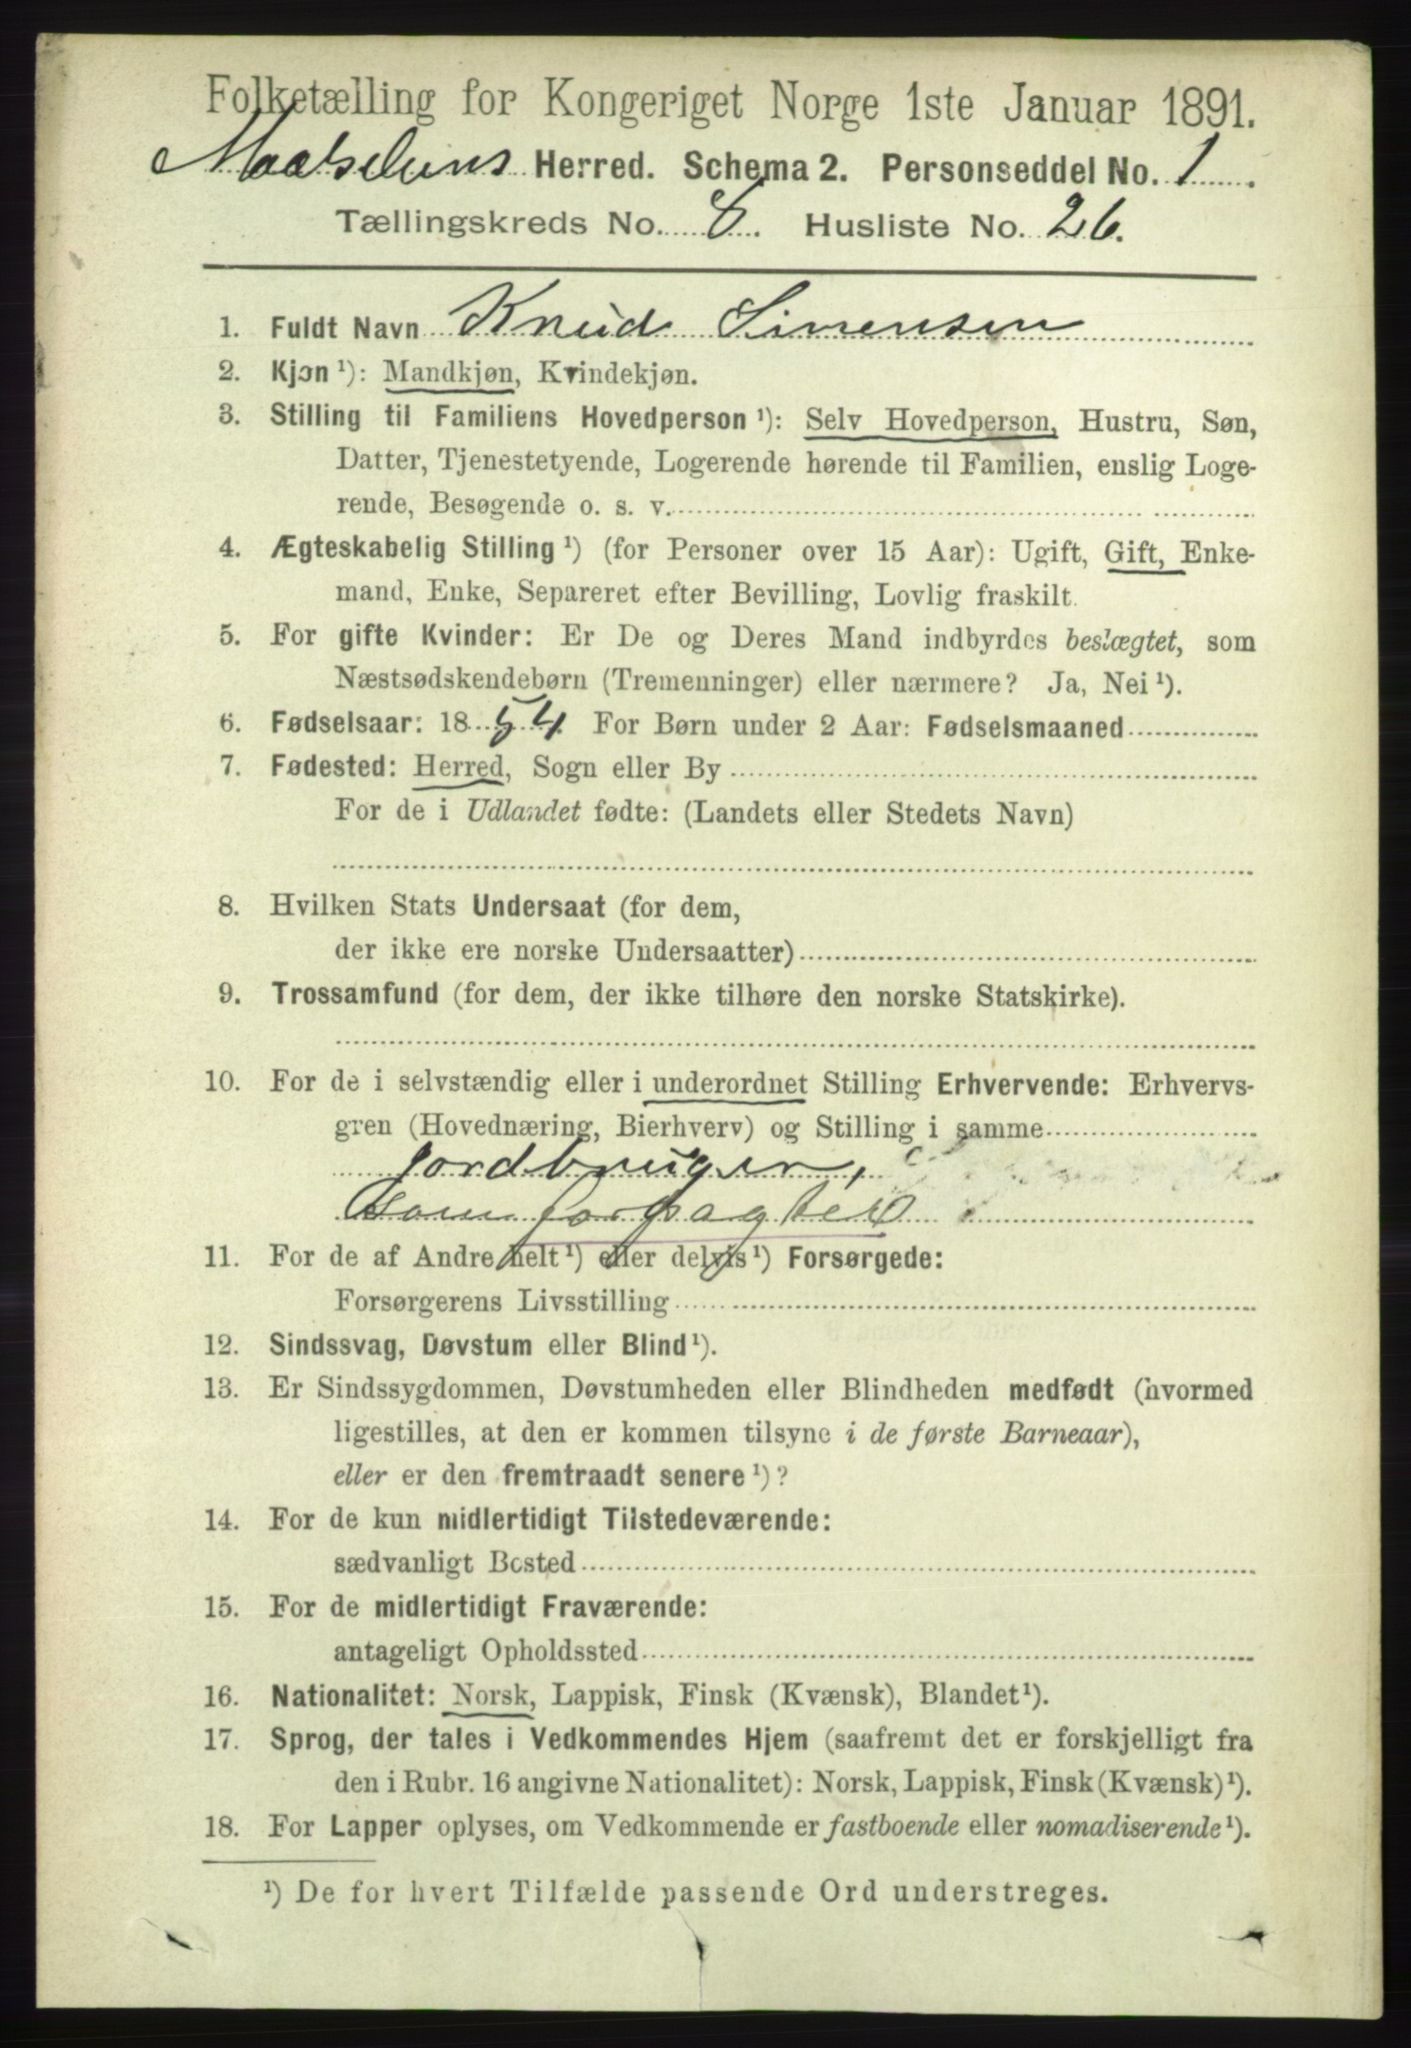 Folketælling for Kongeriget Norge 1ste Januar 1891.
Maalselvens Herred. Schema 2. Personseddel No. 1.
Tællingskreds No. 8. Husliste No. 26.
1. Fuldt Navn Knud Simensen
2. Kjøn ¹): Mandkjøn, Kvindekjøn.
3. Stilling til Familiens Hovedperson ¹): Selv Hovedperson, Hustru, Søn,
Datter, Tjenestetyende, Logerende hørende til Familien, enslig Loge-
rende, Besøgende o. s. v.
4. Ægteskabelig Stilling ¹) (for Personer over 15 Aar): Ugift, Gift, Enke-
mand, Enke, Separeret efter Bevilling, Lovlig fraskilt.
5. For gifte Kvinder: Er De og Deres Mand indbyrdes beslægtet, som
Næstsødskendebørn (Tremenninger) eller nærmere? Ja, Nei ¹).
6. Fødselsaar: 1854. For Børn under 2 Aar: Fødselsmaaned
7. Fødested: Herred, Sogn eller By
For de i Udlandet fødte: (Landets eller Stedets Navn)
8. Hvilken Stats Undersaat (for dem,
der ikke ere norske Undersaatter)
9. Trossamfund (for dem, der ikke tilhøre den norske Statskirke).
10. For de i selvstændig eller i underordnet Stilling Erhvervende: Erhvervs-
gren (Hovednæring, Bierhverv) og Stilling i samme
jordbruger,
som forpagter
11. For de af Andre helt ¹) eller delvis ¹) Forsørgede:
Forsørgerens Livsstilling
12. Sindssvag, Døvstum eller Blind ¹).
13. Er Sindssygdommen, Døvstumheden eller Blindheden medfødt (hvormed
ligestilles, at den er kommen tilsyne i de første Barneaar),
eller er den fremtraadt senere ¹)?
14. For de kun midlertidigt Tilstedeværende:
sædvanligt Bosted
15. For de midlertidigt Fraværende:
antageligt Opholdssted
16. Nationalitet: Norsk, Lappisk, Finsk (Kvænsk), Blandet ¹).
17. Sprog, der tales i Vedkommendes Hjem (saafremt det er forskjelligt fra
den i Rubr. 16 angivne Nationalitet): Norsk, Lappisk, Finsk (Kvænsk) ¹).
18. For Lapper oplyses, om Vedkommende er fastboende eller nomadiserende ¹).
¹) De for hvert Tilfælde passende Ord understreges.